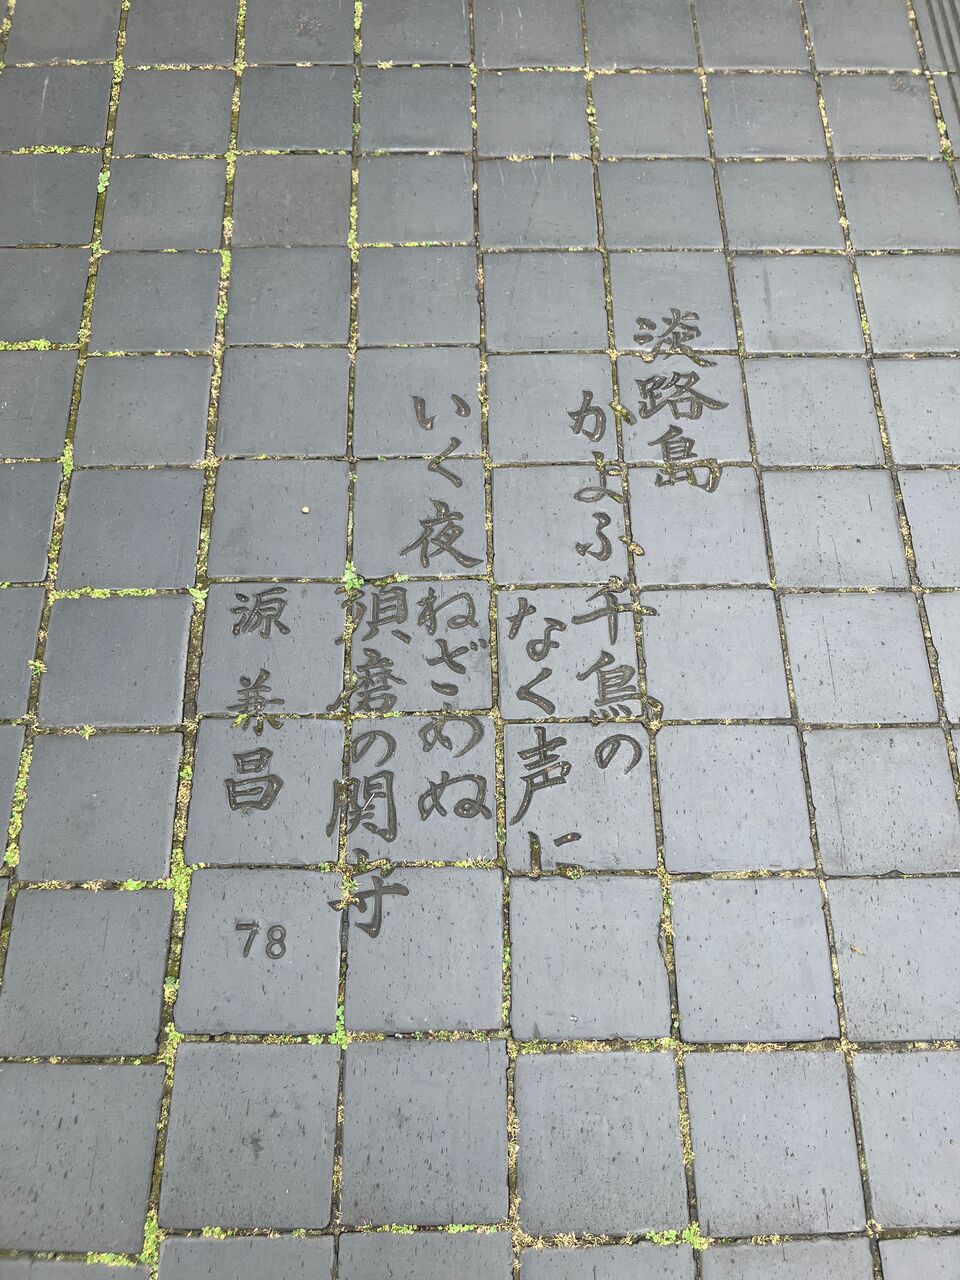 淡路島
かよふ千鳥の
なく声に
いく夜ねざめぬ
須磨の関守
源兼昌
78